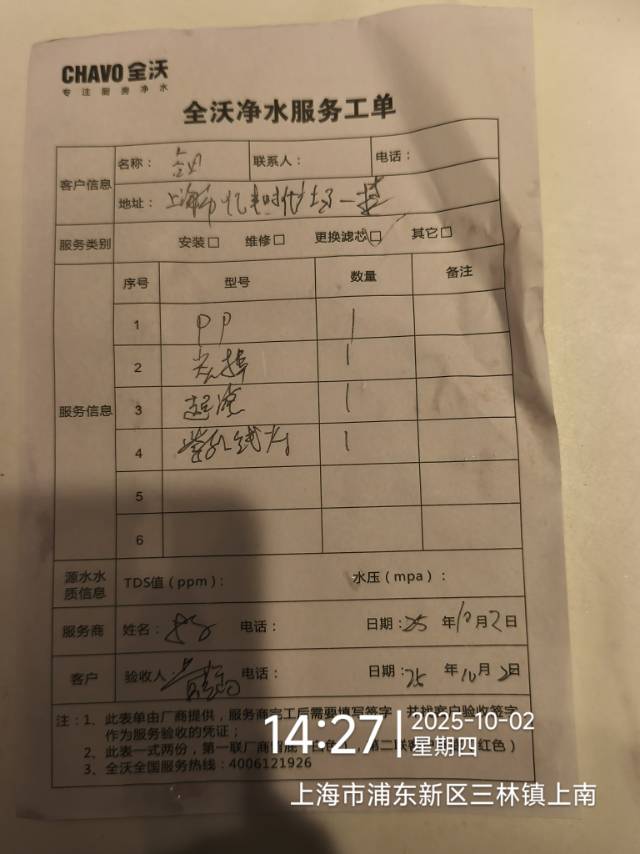 CHAVO 全沃
专注厨房净水
全沃净水服务工单
客户信息
名称：
联系人：
电话：
地址：上海市 时代广场一楼
服务类别
安装□ 维修□ 更换滤芯□ 其它□
服务信息
序号 型号 数量 备注
1 PP 1
2 1
3 超滤 1
4 1
5
6
源水水质信息
TDS值（ppm）： 水压（mpa）：
服务商 姓名： 电话： 日期：25 年10月2日
客户 验收人 电话： 日期：25 年10月2日
注：1、此表单由厂商提供，服务商完工后需要填写签字，并找客户验收签字
作为服务验收的凭证；
2、此表一式两份，第一联厂商 白色），第二联客 红色）
3、全沃全国服务热线：4006121926
14:27
2025-10-02
星期四
上海市浦东新区三林镇上南